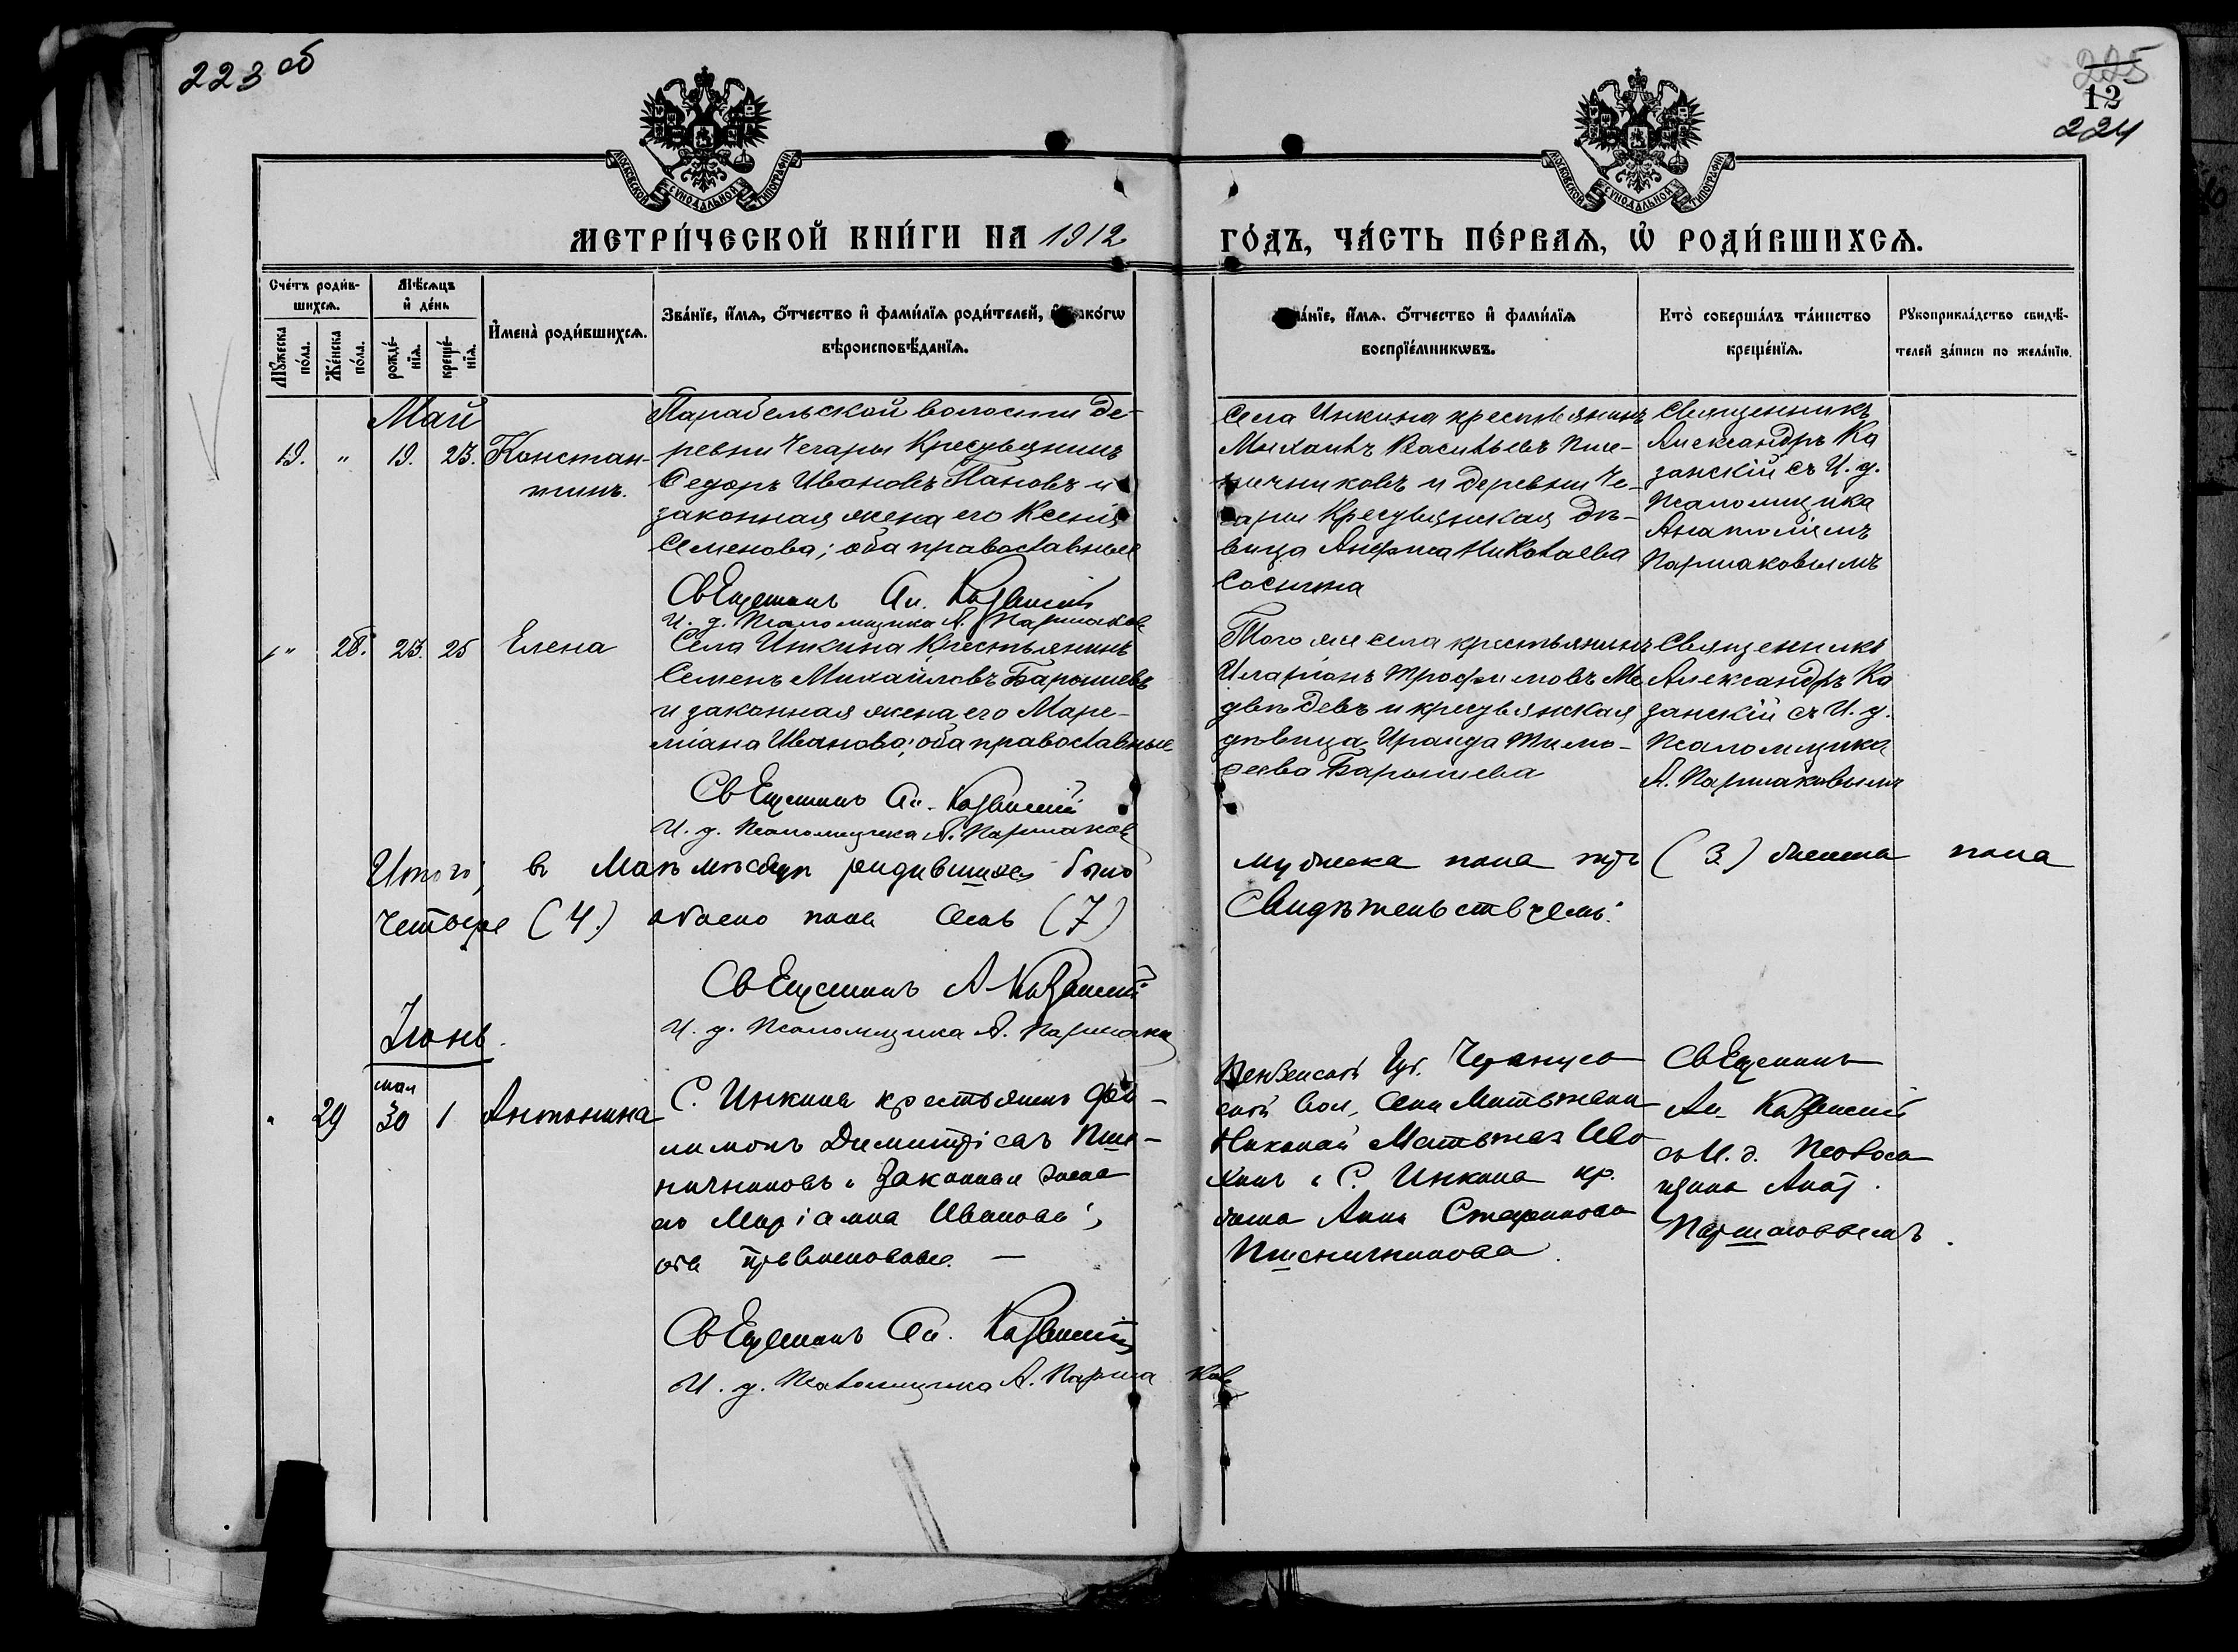 223 об
225
12
224
МОСКОВСКОЙ СУНОДАЛЬНОЙ ТИПОГРАФІИ
МОСКОВСКОЙ СУНОДАЛЬНОЙ ТИПОГРАФІИ
МЕТРИ́ЧЕСКОЙ КНИ́ГИ НА 1912
ГО́ДЪ, ЧА́СТЬ ПЕ́РВАѦ, Ѡ҆ РОДИ́ВШИХСѦ.
Сче́тъ роди́в-
шихсѧ.
Мѣ́сѧцъ
и҆ де́нь
Мꙋ́жеска
по́ла.
Же́нска
по́ла.
рожде́-
нїѧ.
креще́-
нїѧ.
И҆мена̀ роди́вшихсѧ.
Зва́нїе, и҆́мѧ, ѻ҆́тчество и҆ фами́лїѧ роди́телей, и҆ како́гѡ
вѣроисповѣ́данїѧ.
Зва́нїе, и҆́мѧ, ѻ҆́тчество и҆ фами́лїѧ
воспрїе́мникѡвъ.
Кто̀ соверша́лъ та́инство
креще́нїѧ.
Рꙋкоприкла́дство свидѣ́-
телей за́писи по жела́нїю.
Май
19. " 19. 23. Констан-
тинъ.
Парабельской волости де-
ревни Чегары Крестьянинъ
Ѳедоръ Ивановъ Пановъ и
законная жена его Ксенія
Семенова; оба православные
Священникъ Ал. Казанскій
И. д. Псаломщика А. Паршаковъ
Села Инкина крестьянинъ
Михаилъ Васильевъ Пше-
ничниковъ и деревни Че-
гары Крестьянская дѣ-
вица Анфиса Николаева
Сосинина
Священникъ
Александръ Ка
занскій съ И. д.
Псаломщика
Анатоліемъ
Паршаковымъ
" 28. 23. 25 Елена
Села Инкина Крестьянинъ
Семенъ Михайловъ Барышевъ
и законная жена его Маре-
міана Иванова; оба православные
Священникъ Ал. Казанскій
И. д. Псаломщика А. Паршаковъ
Того же села крестьянинъ
Иларіонъ Трофимовъ Ме
двѣдевъ и крестьянская
дѣвица Ираида Тимо-
феева Барышева
Священникъ
Александръ Ка
занскій съ И. д.
Псаломщика
А. Паршаковымъ
Итого, въ Маѣ мѣсяцѣ родившихся было мужеска пола три (3) женска пола
четыре (4) обоего пола семь (7) Свидѣтельствуемъ:
Священникъ А Казанскій
И. д. Псаломщика А. Паршаковъ
Іюнь.
мая
" 29 30 1 Антонина
С. Инкина крестьянинъ Фи-
лимонъ Димитріевъ Пше-
ничниковъ и законная жена
его Маріамна Иванова;
оба православные. —
Священникъ Ал. Казанскій
И. д. Псаломщика А. Паршаковъ
Пензенской Губ.
ской вол, села
Николай
и С. Инкина кр.
жена Анна
Пшеничникова.
Священникъ
Ал. Казанскій
съ И. д. Псалом
щика Анат.
Паршаковымъ.